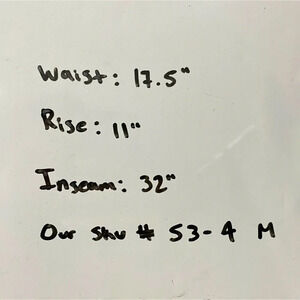 Waist: 17.5"
Rise: 11"
Inseam: 32"
Our Sku # 53-4 M